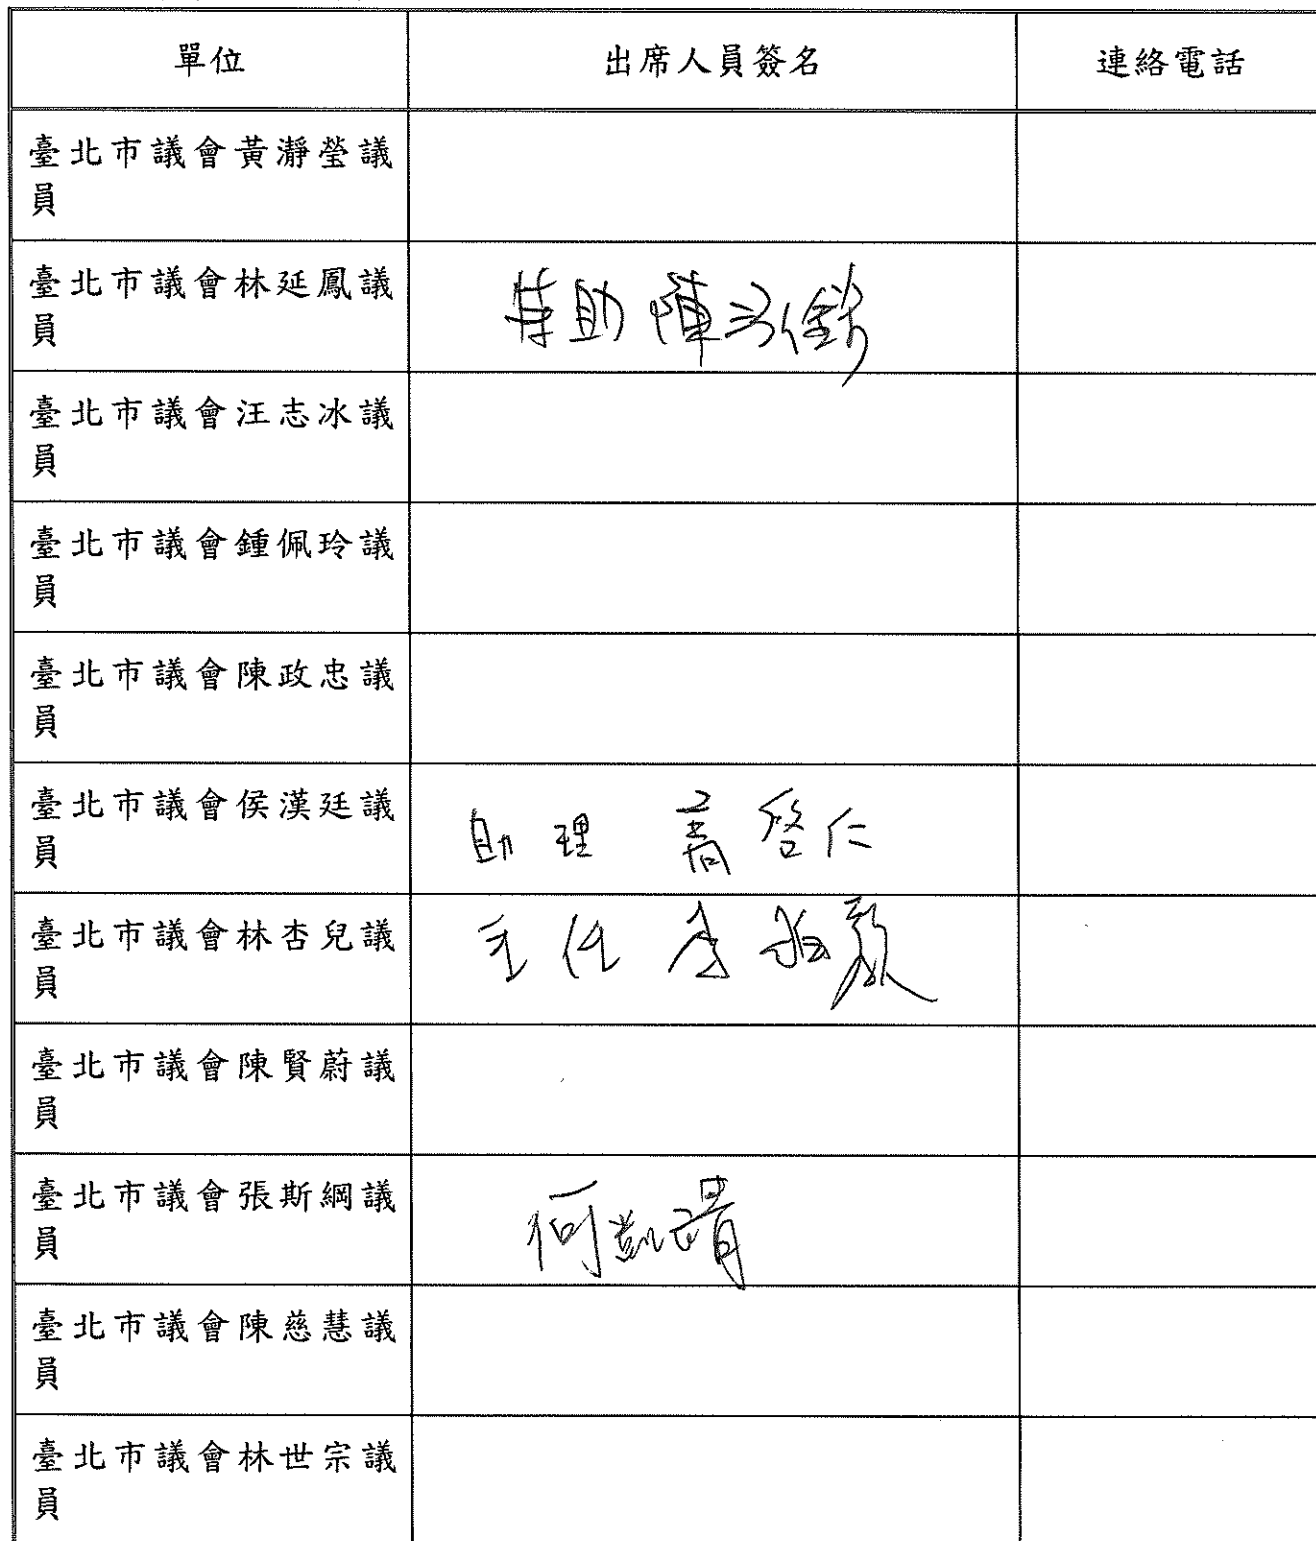 單位 出席人員簽名 連絡電話
臺北市議會黃瀞瑩議
員
臺北市議會林延鳳議
員
助 陳
臺北市議會汪志冰議
員
臺北市議會鍾佩玲議
員
臺北市議會陳政忠議
員
臺北市議會侯漢廷議
員
助理 啓仁
臺北市議會林杏兒議
員
主任 李
臺北市議會陳賢蔚議
員
臺北市議會張斯綱議
員
何凱
臺北市議會陳慈慧議
員
臺北市議會林世宗議
員